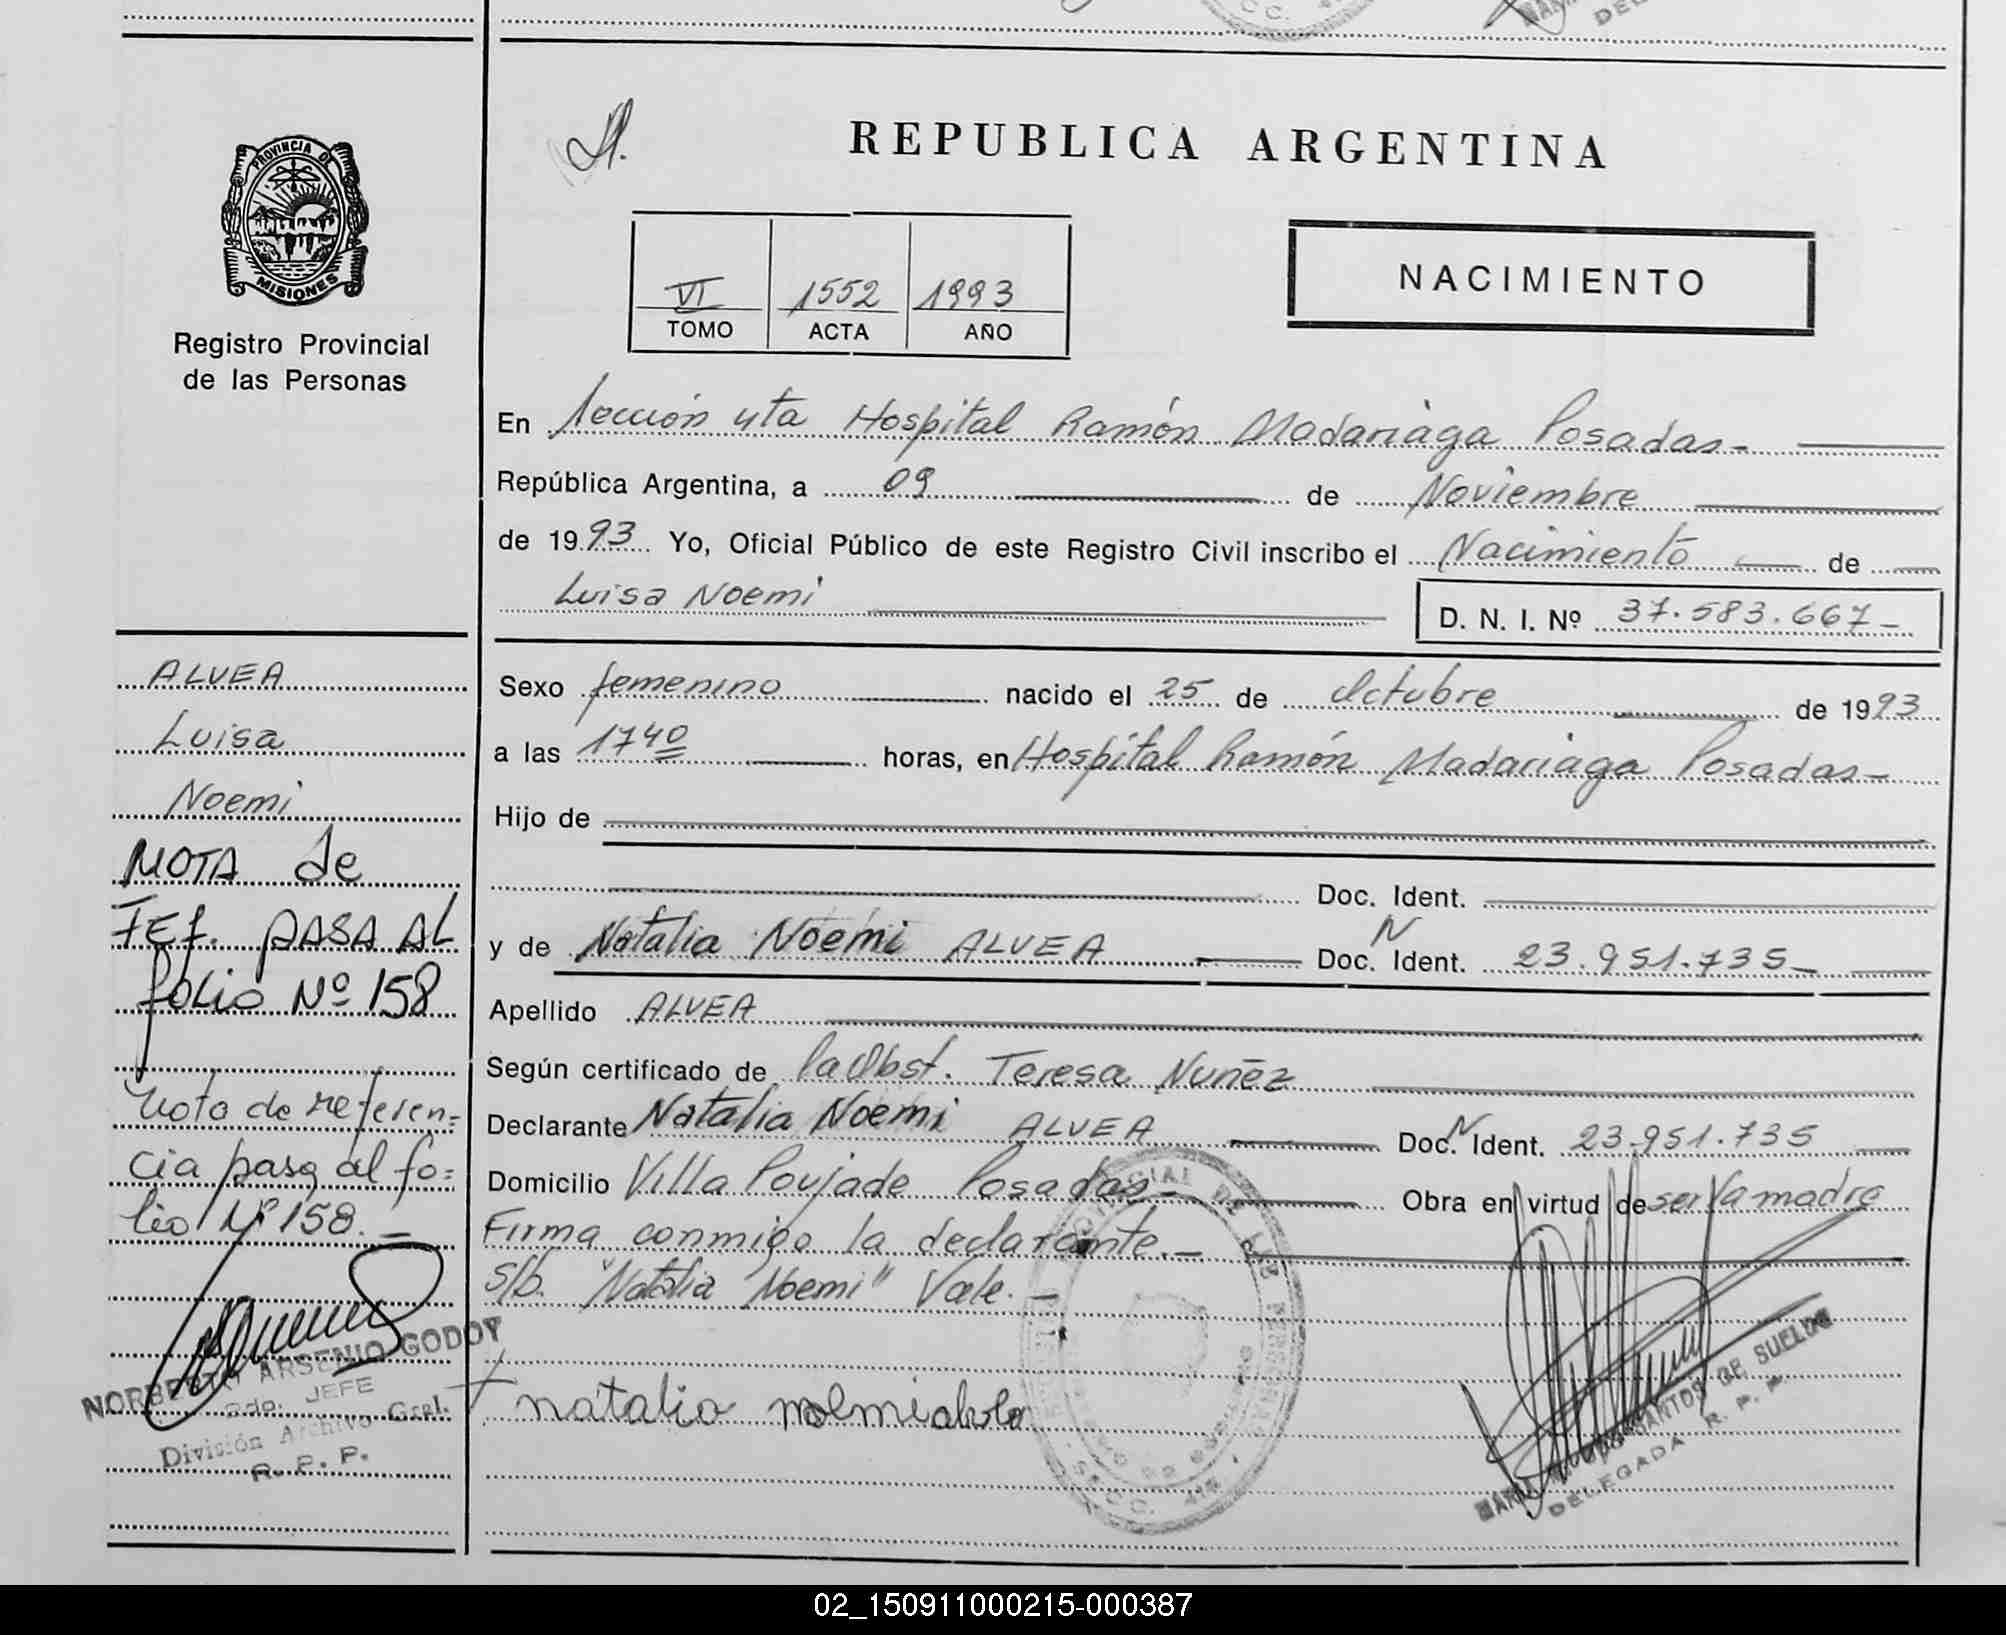 REPUBLICA ARGENTINA
PROVINCIA DE
MISIONES
Registro Provincial
de las Personas
VI 1552 1993
TOMO ACTA AÑO
NACIMIENTO
En Sección 4ta Hospital Ramón Madariaga Posadas-
República Argentina, a 09 de Noviembre
de 1993 Yo, Oficial Público de este Registro Civil inscribo el Nacimiento de
Luisa Noemi D. N. I. Nº 37.583.667-
Sexo femenino nacido el 25 de Octubre de 1993
a las 1740 horas, en Hospital Ramón Madariaga Posadas-
Hijo de
Doc. Ident.
y de Natalia Noemi ALVEA Doc. N Ident. 23.951.735-
Apellido ALVEA
Según certificado de la Obst. Teresa Nuñez
Declarante Natalia Noemi ALVEA Doc. N Ident. 23.951.735
Domicilio Villa Poujade Posadas- Obra en virtud de ser la madre
Firma conmigo la declarante.-
s/b. "Natalia Noemi" Vale.-
natalia noemi
ALVEA
Luisa
Noemi
NOTA de
REF. PASA AL
folio Nº 158
Nota de referen=
cia pasa al fo=
lio Nº 158.-
NORBERTO ARSENIO GODOY
JEFE
División Archivo Gral.
R. P. P.
SANTOS DE SUELDO
DELEGADA R. P. P.
02_150911000215-000387